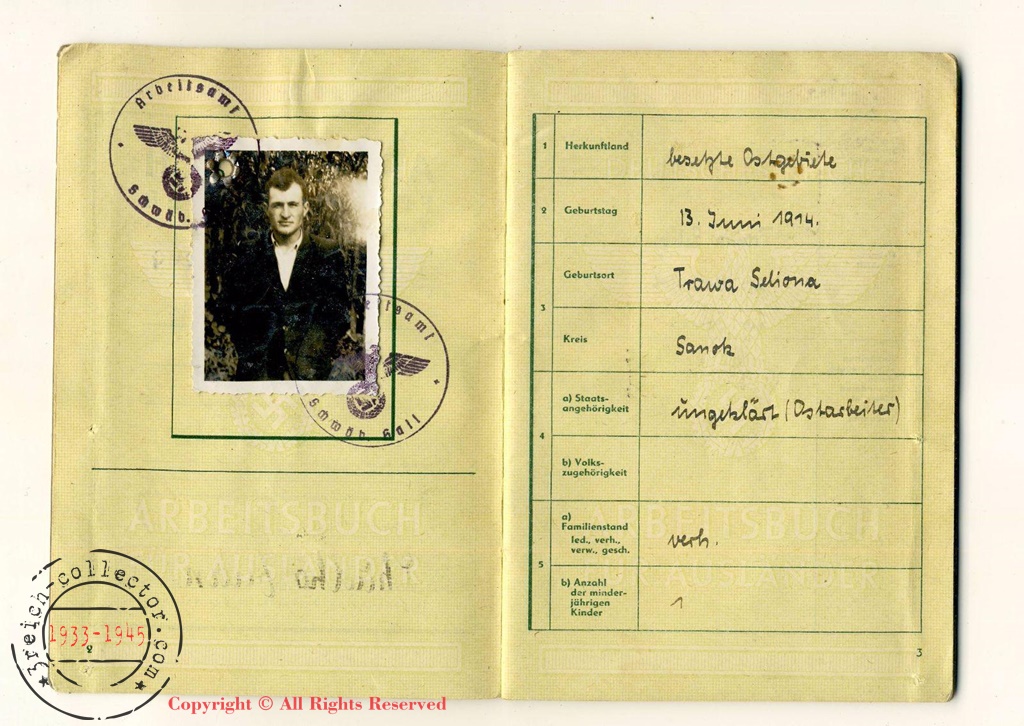 Arbeitsamt
Schwäb.
Arbeitsamt
Schwäb. Hall
ARBEITSBUCH
1 Herkunftland besetzte Ostgebiete
2 Geburtstag 13. Juni 1914.
3 Geburtsort Trawa Seliona
Kreis Sanok
4 a) Staats-
angehörigkeit ungeklärt (Ostarbeiter)
b) Volks-
zugehörigkeit
5 a)
Familienstand
led., verh.,
verw., gesch. verh.
b) Anzahl
der minder-
jährigen
Kinder 1
ARBEITSBUCH
FÜR AUSLÄNDER
3
3reich-collector.com
1933-1945
2
Copyright © All Rights Reserved